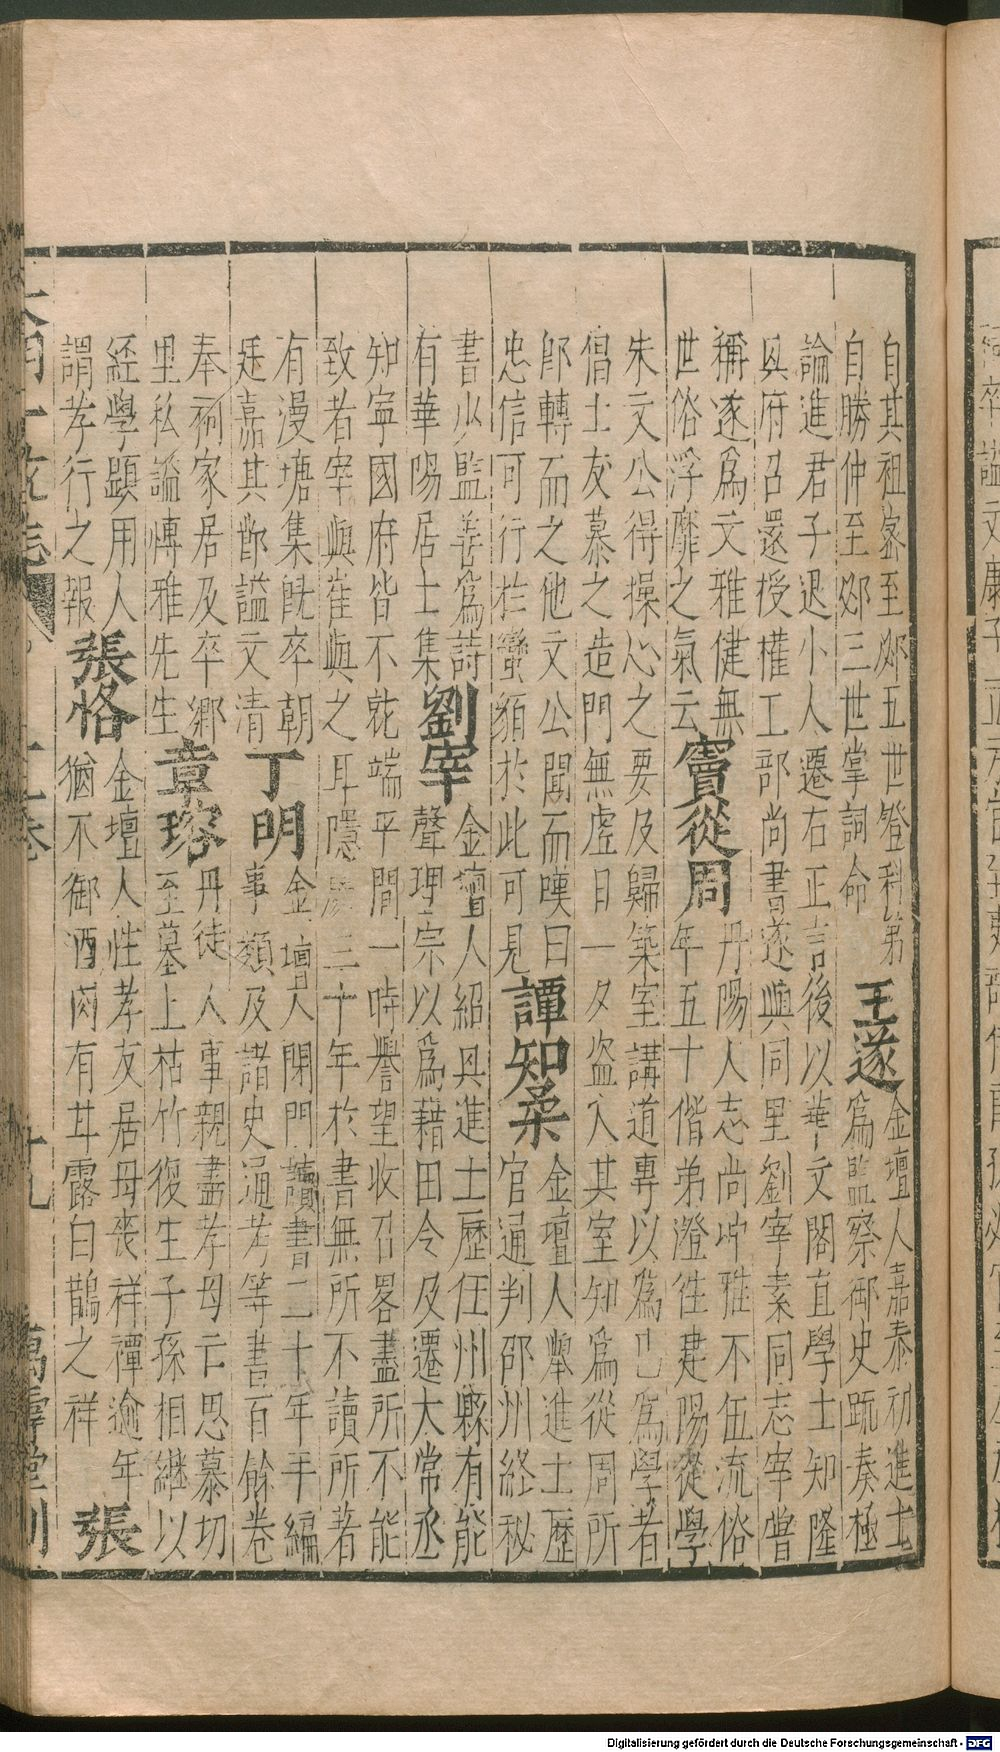 自其祖宻至郯五世登科第
自勝仲至郯三世掌詞命
王遂
金壇人嘉泰初進士
為監察御史䟽奏極
論進君子退小人遷右正言後以華文閣直學士知隆
興府召還授權工部尚書遂與同里劉宰素同志宰嘗
稱遂為文雅健無
世俗浮靡之氣云
竇從周
丹陽人志尚端雅不伍流俗
年五十偕弟澄徃建陽從學
朱文公得操心之要及歸築室講道專以為已為學者
倡士友慕之造門無虗日一夕盗入其室知為從周所
郎轉而之他文公聞而嘆曰
忠信可行於蠻貊於此可見
譚知柔
金壇人舉進士歷
官通判邵州終秘
書少監善為詩
有華陽居士集
劉宰
金壇人紹興進士歷任州縣有能
聲理宗以為藉田令及遷太常丞
知寧國府皆不就端平間一時譽望收召畧盡所不能
致者宰與崔與之耳隱居三十年於書無所不讀所著
有漫塘集旣卒朝
廷嘉其節謚文清
丁明
金壇人閉門讀書二十年手編
事類及諸史通考等書百餘卷
奉祠家居及卒鄉
里私謚愽雅先生
章瑢
丹徒人事親盡孝母亡思慕切
至墓上枯竹復生子孫相繼以
經學顯用人
謂孝行之報
張恪
金壇人性孝友居母丧祥禫逾年
猶不御酒肉有甘露白鵲之祥
張
大明一統志 卷 十九 萬壽堂刊
Digitalisierung gefördert durch die Deutsche Forschungsgemeinschaft - DFG